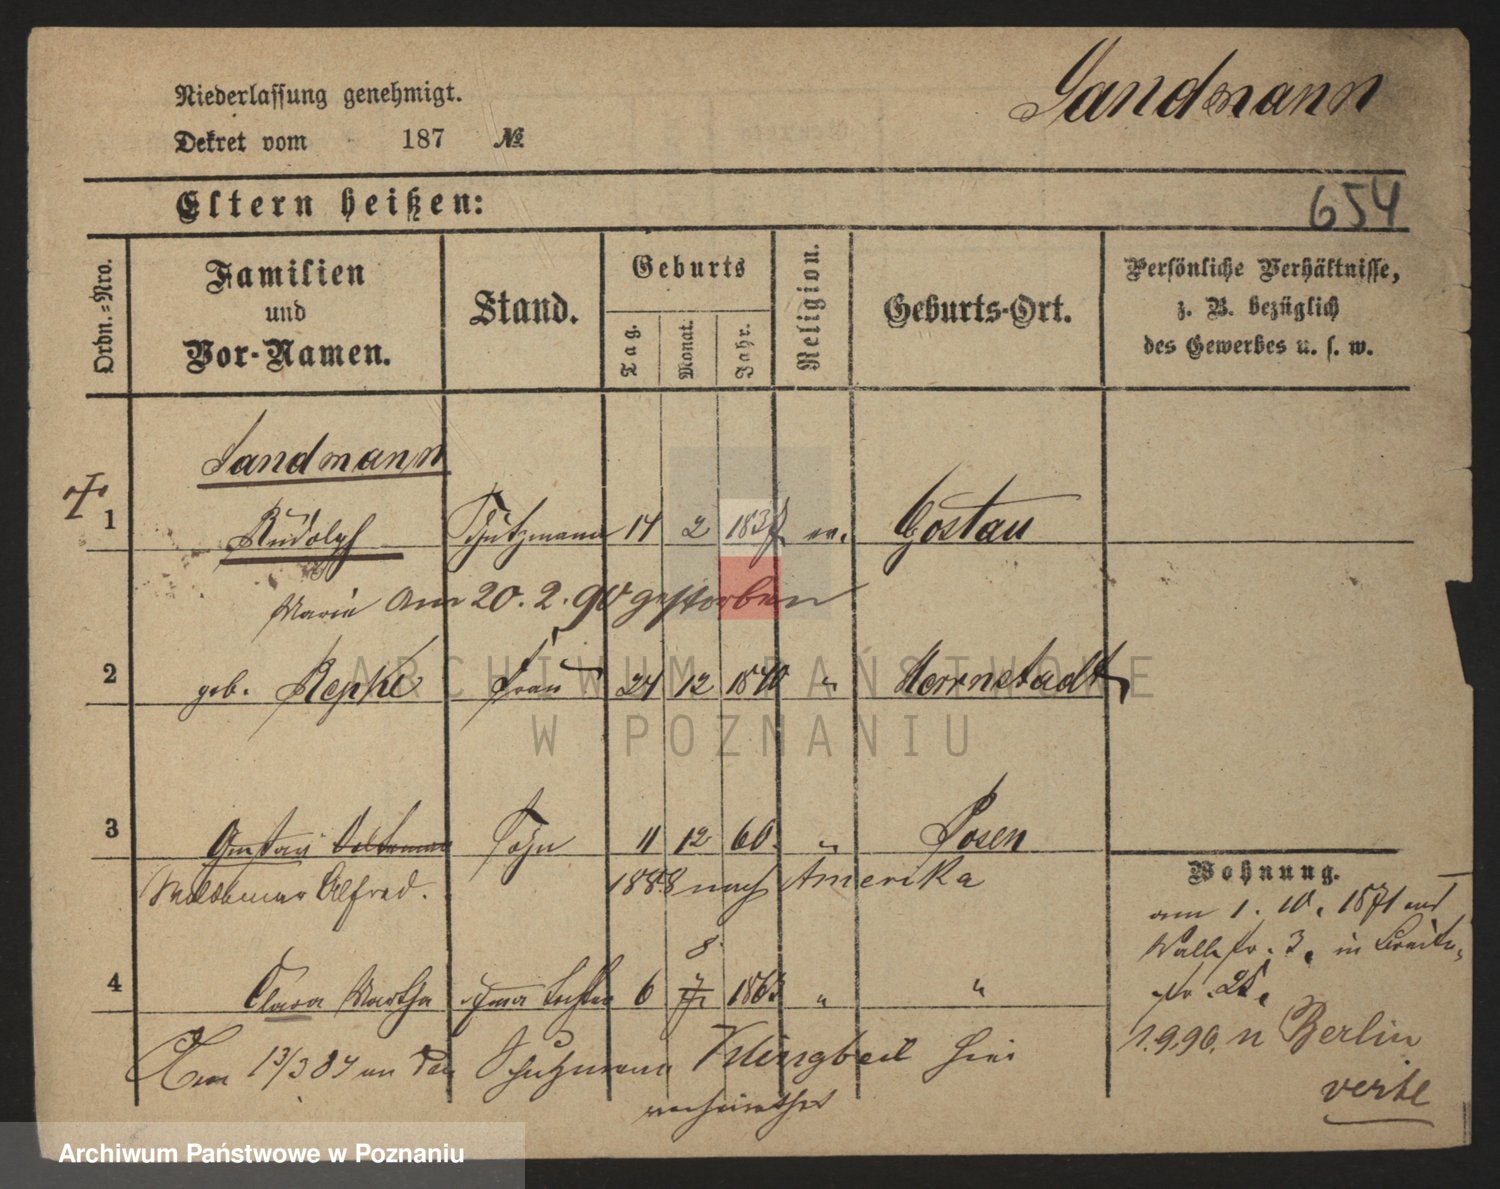 Sandmann
Niederlassung genehmigt.
Dekret vom 187 №
Eltern heißen:
654
Ordn.-Nro.
Familien
und
Vor-Namen.
Stand.
Geburts
Tag.
Monat.
Jahr.
Religion.
Geburts-Ort.
Persönliche Verhältnisse,
z. B. bezüglich
des Gewerbes u. s. w.
Sandmann
1 Rudolph Schutzmann 14 2 ev. Gostau
Marie Am 20. 2. 90 gestorben
2 geb. Repke Frau 24 12 1840 " Herrnstadt
ARCHIWUM PAŃSTWOWE
W POZNANIU
3 Gustav Sohn 11 12 60. " Posen
Waldemar Alfred. 1888 nach Amerika
8
4 Clara Martha Tochter 6 1863 " "
Am 13/3 84 an den Schutzmann Klingbeil hier
verheirathet
Wohnung.
am 1. 10. 1871 auf
Wallstr. 3. in Breite-
str. 25.
1.9.96. n Berlin
verte
Archiwum Państwowe w Poznaniu